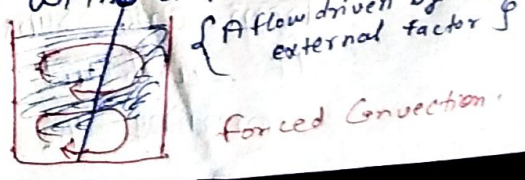 {A flow driven by
external factor}
Forced Convection.